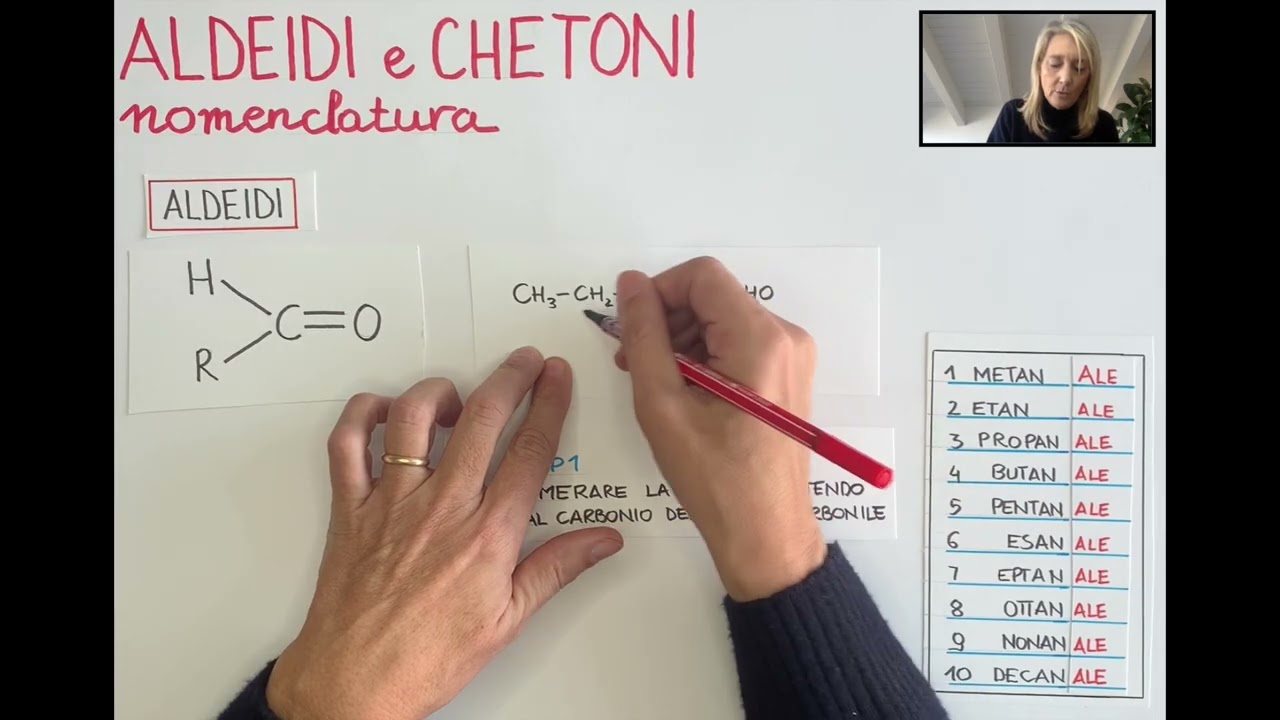 ALDEIDI e CHETONI
nomenclatura
ALDEIDI
H
C=O
R
CH₃-CH₂-
HO
P1
MERARE LA TENDO
AL CARBONIO DE RBONILE
1 METAN ALE
2 ETAN ALE
3 PROPAN ALE
4 BUTAN ALE
5 PENTAN ALE
6 ESAN ALE
7 EPTAN ALE
8 OTTAN ALE
9 NONAN ALE
10 DECAN ALE